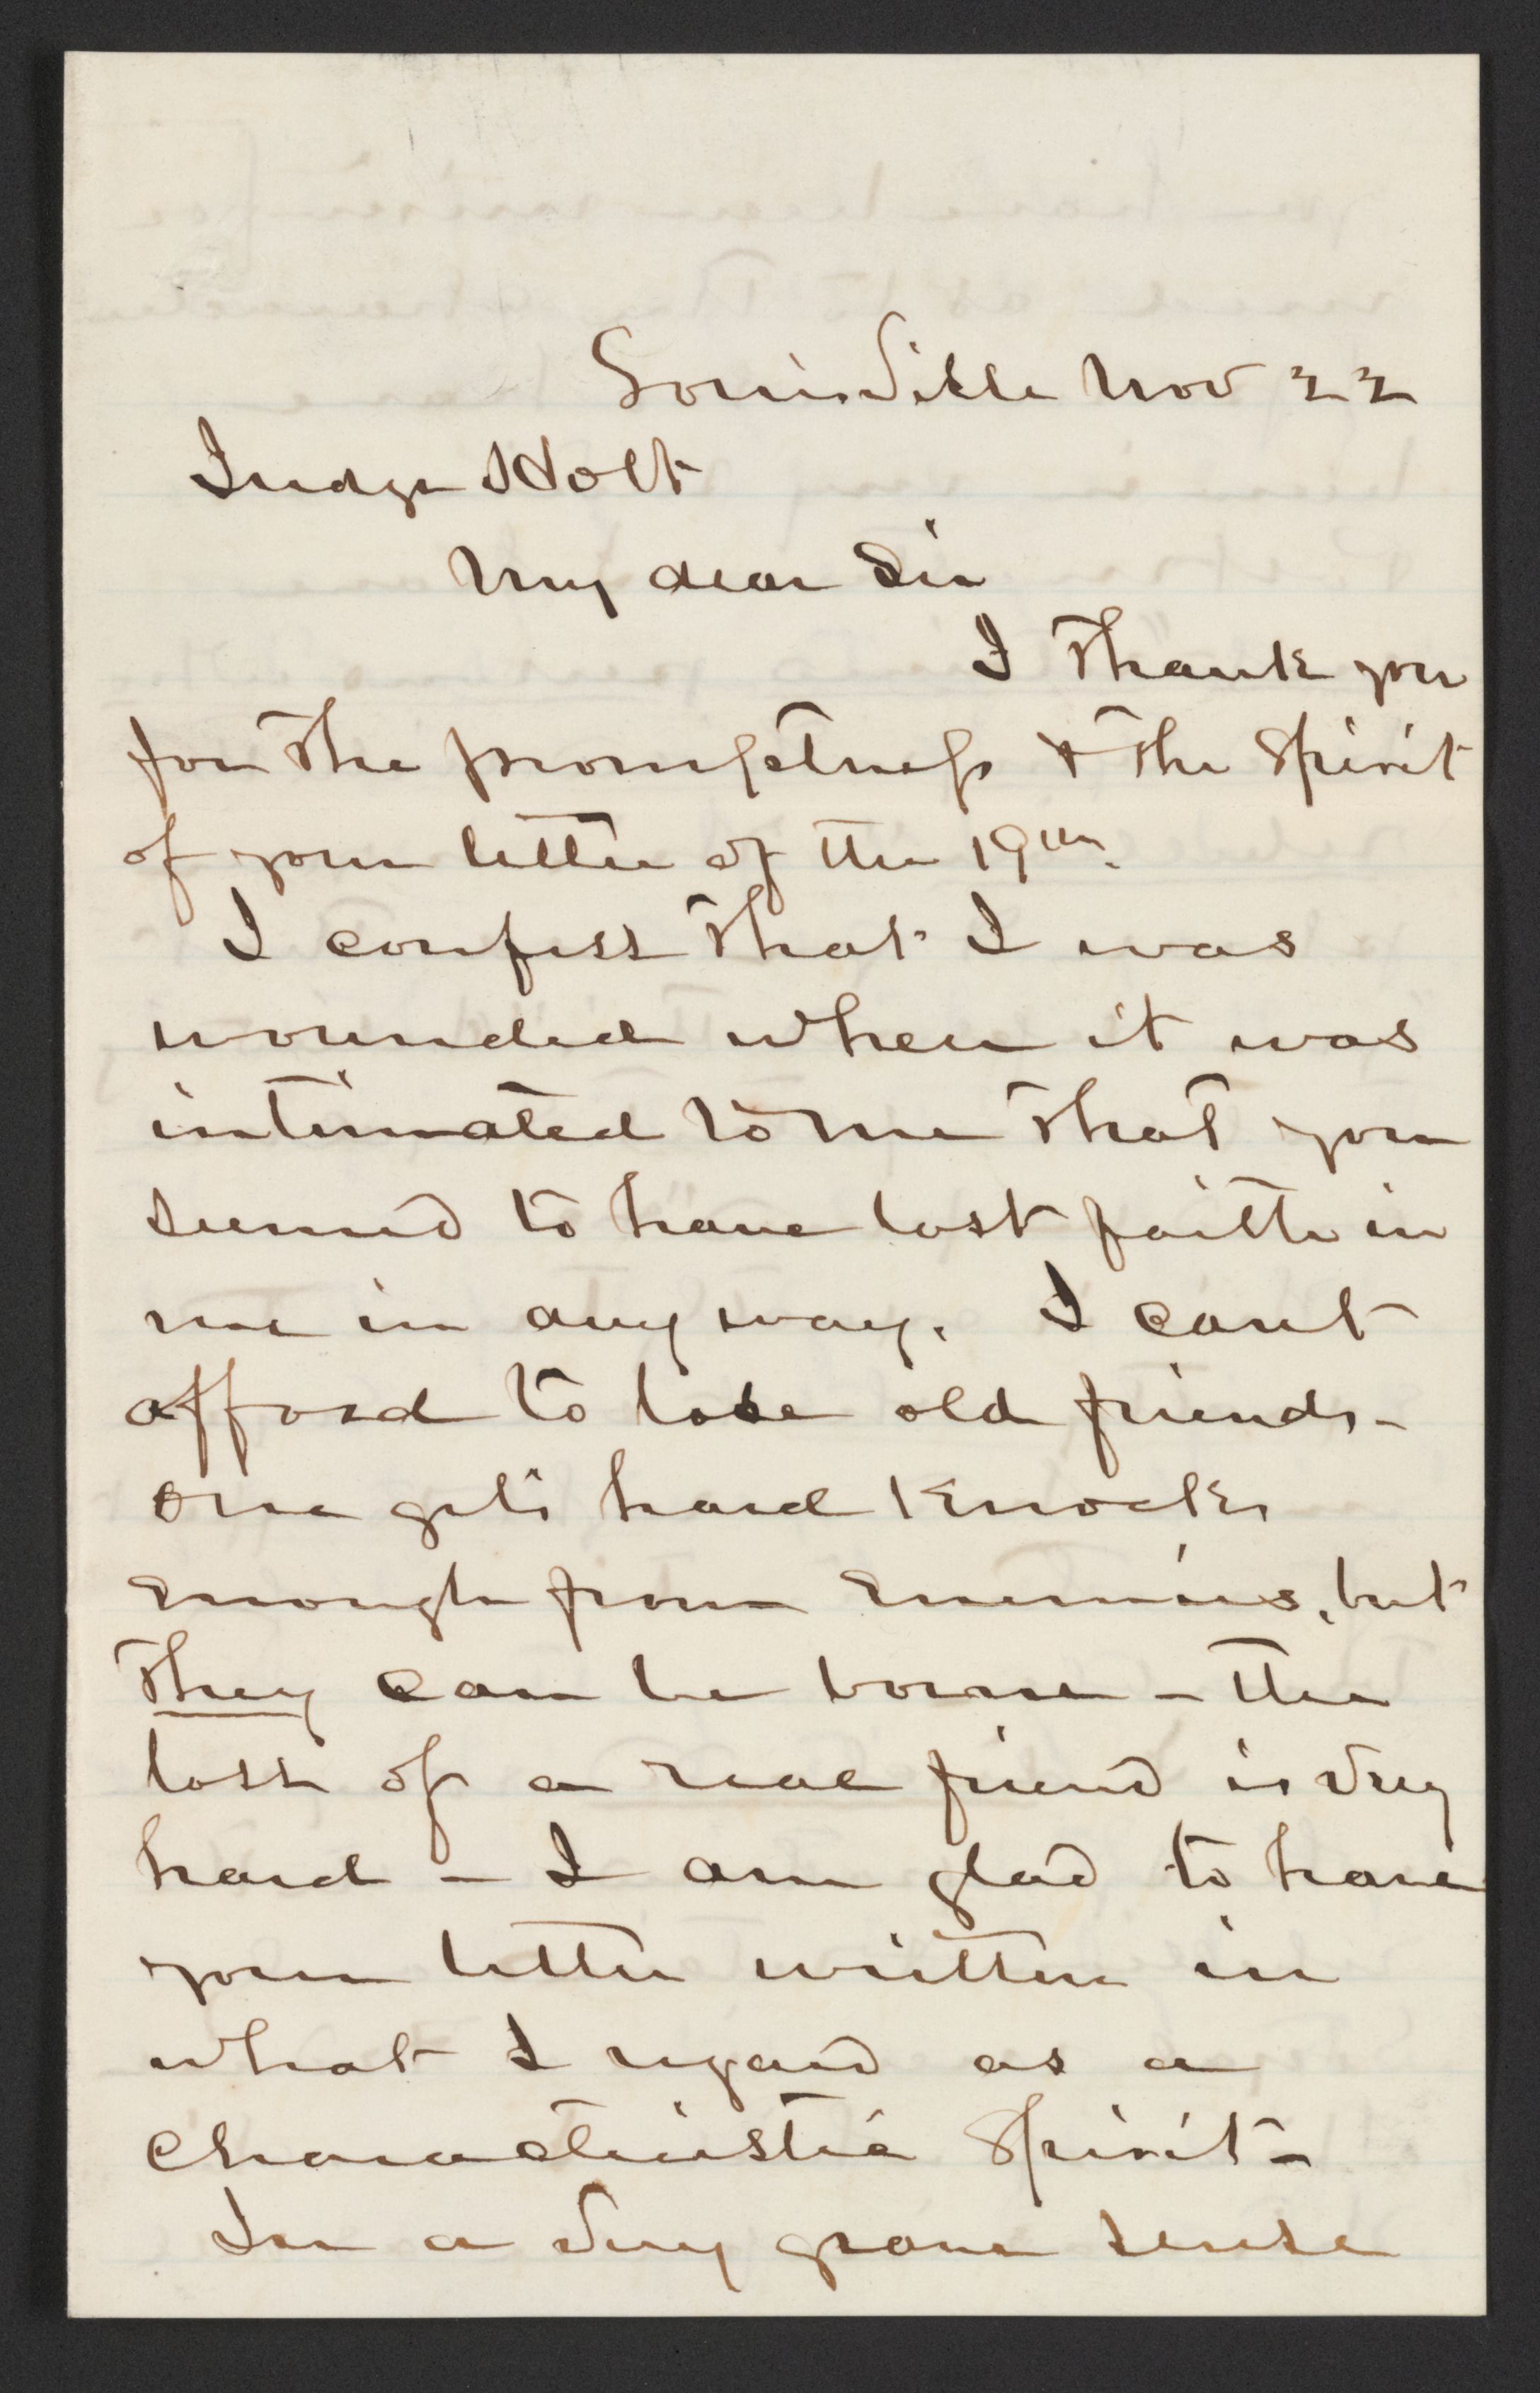 Louisville Nov 22
Judge Holt
My dear Sir
I thank you
for the promptness & the spirit
of your letter of the 19th.
I confess that I was
wounded when it was
intimated to me that you
seemed to have lost faith in
me in any way. I cant
afford to lose old friends -
one gets hard knocks
enough from enemies, but
they can be borne - the
loss of a real friend is very
hard - I am glad to have
your letter written in
what I regard as a
characteristic spirit -
In a very grave sense